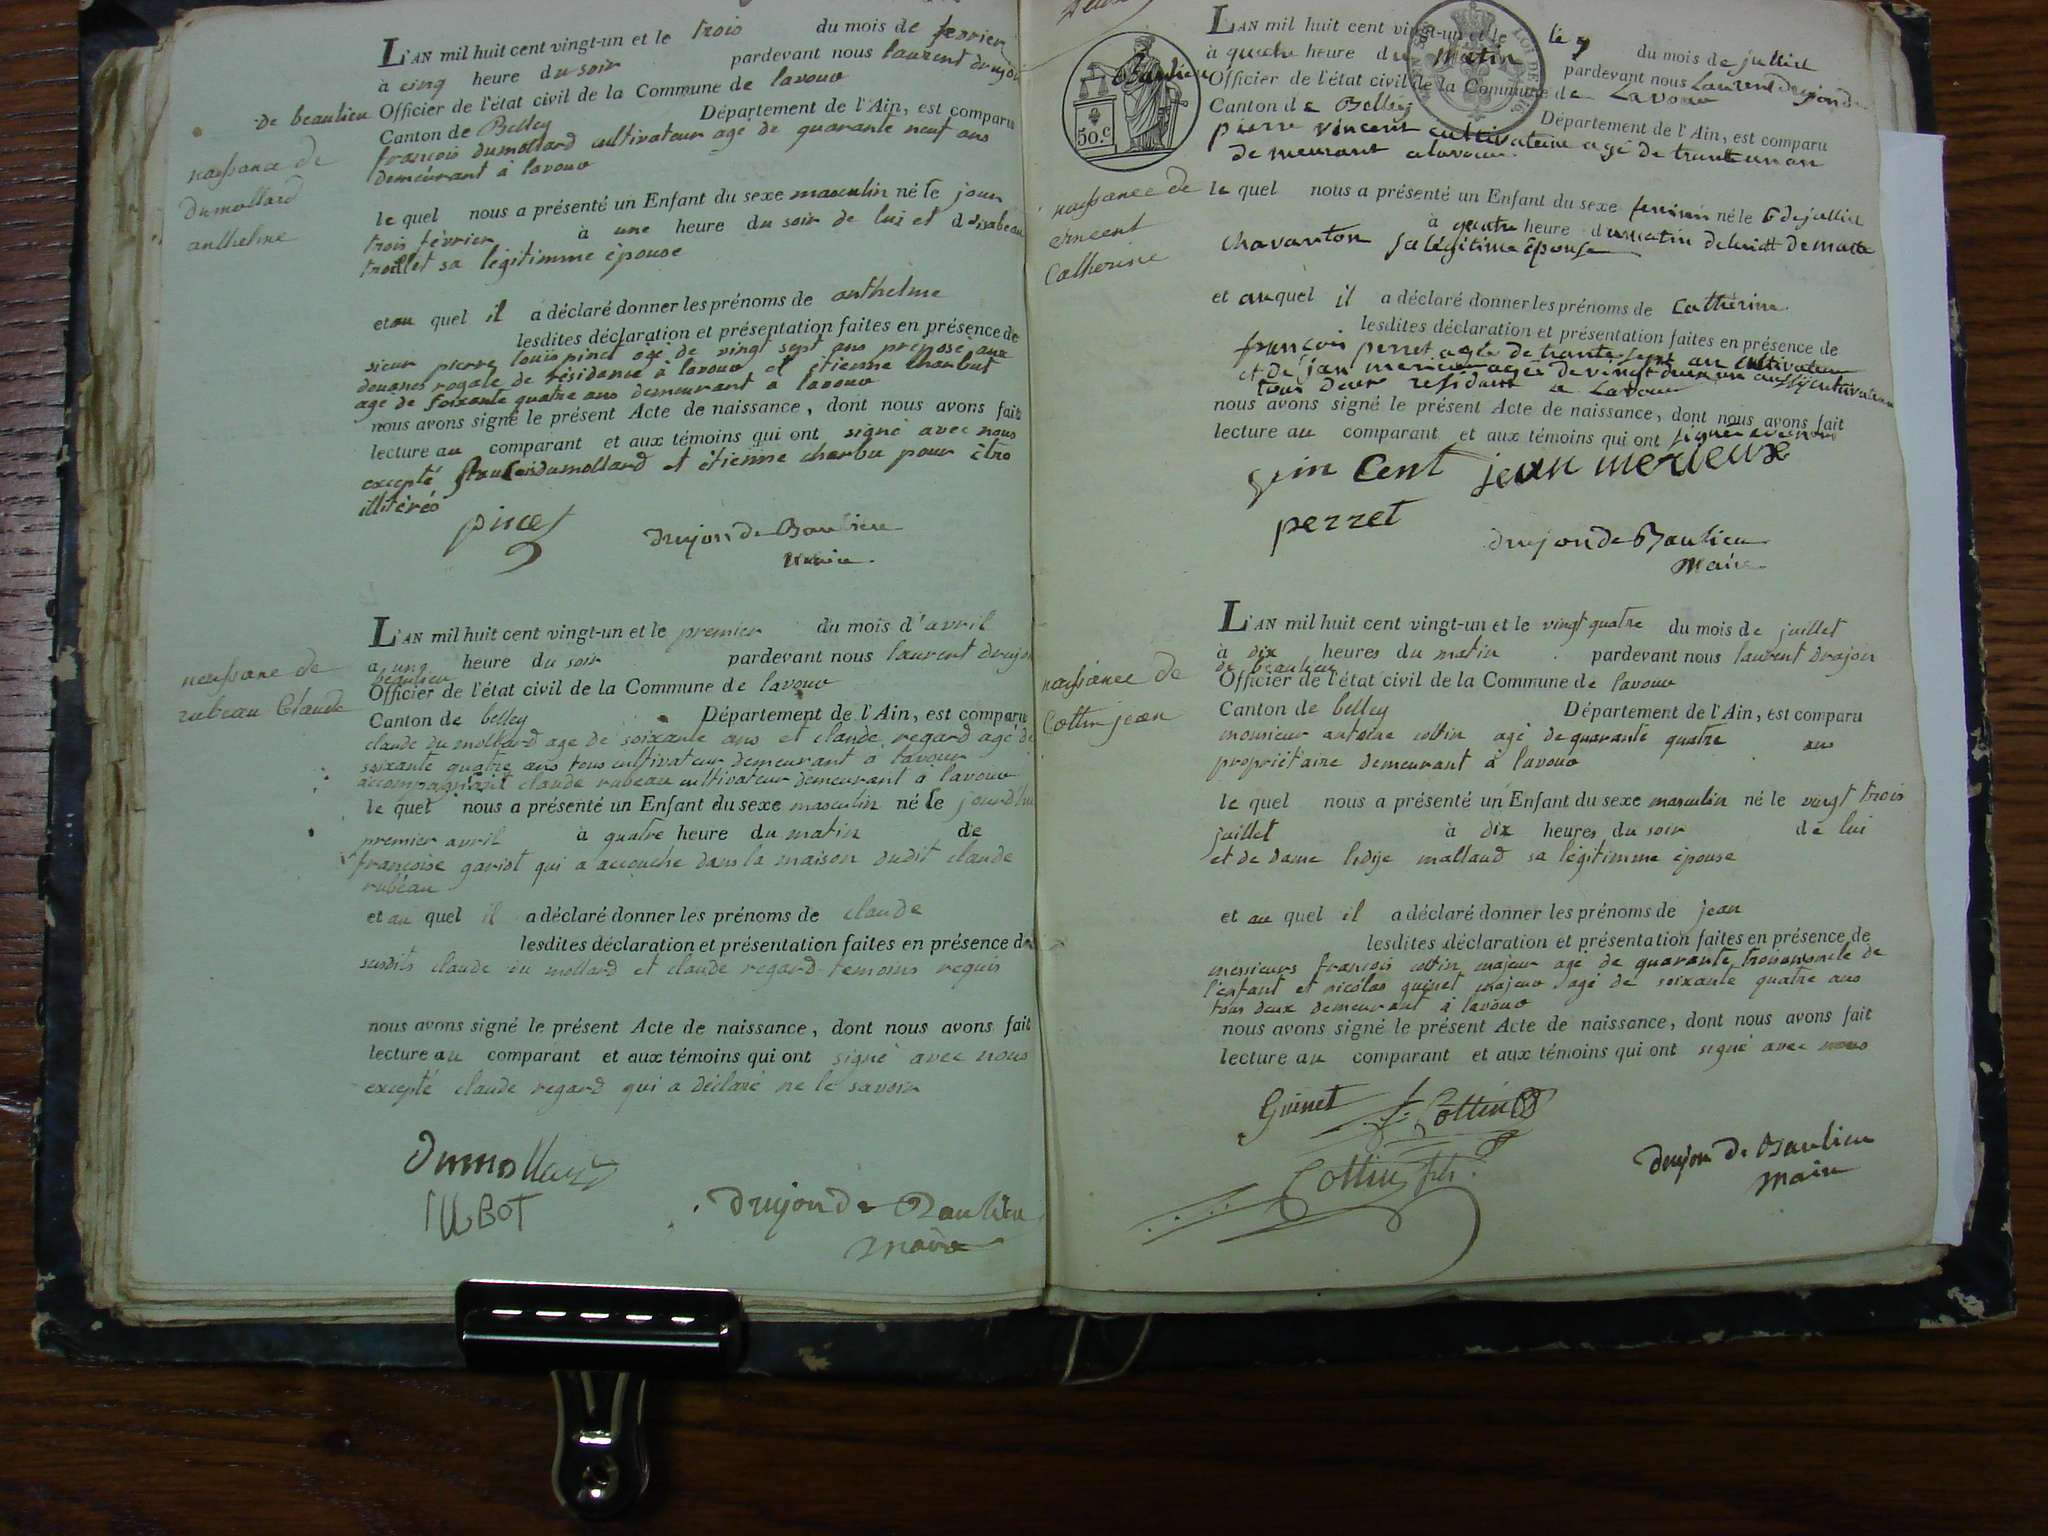 L'AN mil huit cent vingt-un et le trois du mois de fevrier
à cinq heure du soir pardevant nous laurent drujon
de beaulieu Officier de l'état civil de la Commune de lavour
Canton de Belley Département de l'Ain, est comparu
françois dumollard cultivateur agé de quarante neuf ans
demeurant à lavour
naissance de
dumollard
anthelme
le quel nous a présenté un Enfant du sexe masculin né le jour
trois février à une heure du soir de lui et d'isabeau
trollet sa légitimme épouse
et au quel il a déclaré donner les prénoms de anthelme
lesdites déclaration et présentation faites en présence de
sieur pierre louis pinet agé de vingt sept ans préposé aux
douanes royale de résidence à lavour et étienne charbut
agé de soixante quatre ans demeurant à lavour
nous avons signé le présent Acte de naissance, dont nous avons fait
lecture au comparant et aux témoins qui ont signé avec nous
excepté françois dumollard et étienne charbu pour être
illitérés
pinet drujon de Baulieu
maire.
L'AN mil huit cent vingt-un et le premier du mois d'avril
a une heure du soir pardevant nous laurent drujon
beaulieu
Officier de l'état civil de la Commune de lavour
naissance de
rubeau Claude
Canton de belley Département de l'Ain, est comparu
claude du mollard age de soixante ans et claude regard agé de
soixante quatre ans tous cultivateur demeurant à lavour
accompagnant claude rubeau cultivateur demeurant à lavour
le quel nous a présenté un Enfant du sexe masculin né le jourd'hui
premier avril à quatre heure du matin de
françoise gariot qui a accouche dans la maison dudit claude
rubéau
et au quel il a déclaré donner les prénoms de claude
lesdites déclaration et présentation faites en présence de
susdits claude du mollard et claude regard temoins requis
nous avons signé le présent Acte de naissance, dont nous avons fait
lecture au comparant et aux témoins qui ont signé avec nous
excepté claude regard qui a déclaré ne le savoir
Dumollard
drujon de Baulieu
maire
L'AN mil huit cent vingt-un et le le 7 du mois de julliet
à quatre heure du matin pardevant nous Laurent drujon de
Baulieu Officier de l'état civil de la Commune de Lavour
Canton de Belley Département de l'Ain, est comparu
50.c
pierre vincent cultivateur agé de trante un an
demeurant a lavour
naissance de
vincent
Catherine
le quel nous a présenté un Enfant du sexe feminin né le 6 de julliet
à quatre heure du matin de lui et de marie
chavanton sa légitime épouse
et auquel il a déclaré donner les prénoms de Cathérine
lesdites déclaration et présentation faites en présence de
françois perret agée de trante sept an cultivateur
et de jan merieux agée de vingt deux an aussy cultivateur
tous deux residant a Lavour
nous avons signé le présent Acte de naissance, dont nous avons fait
lecture au comparant et aux témoins qui ont signée avec nous
vin cent jean merieux
perret
drujon de Baulieu
Maire
L'AN mil huit cent vingt-un et le vingt quatre du mois de juillet
à dix heures du matin pardevant nous laurent drujon
de beaulieu
Officier de l'état civil de la Commune de lavour
naissance de
Cottin jean
Canton de belley Département de l'Ain, est comparu
monsieur antoine cottin agé de quarante quatre ans
propriétaire demeurant à lavour
le quel nous a présenté un Enfant du sexe masculin né le vingt trois
juillet à dix heures du soir de lui
et de dame mallaud sa légitimme épouse
et au quel il a déclaré donner les prénoms de jean
lesdites déclaration et présentation faites en présence de
messieurs françois cottin majeur agé de quarante trois oncle de
l'enfant et nicolas guinet majeur agé de soixante quatre ans
tous deux demeurant à lavour
nous avons signé le présent Acte de naissance, dont nous avons fait
lecture au comparant et aux témoins qui ont signé avec nous
Guinet f. Cottin
Cottin fils
drujon de Baulieu
maire